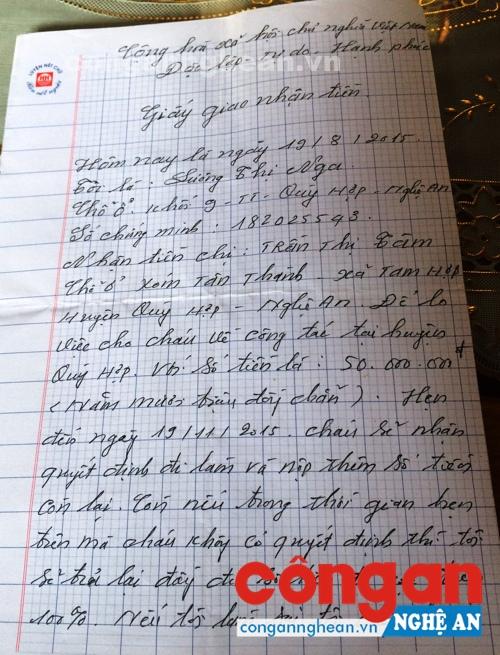 Cộng hoà xã hội chủ nghĩa Việt Nam
Độc lập Tự do - Hạnh phúc
LUYỆN NÉT CHỮ
Rèn nết người
Giấy giao nhận tiền
Hôm nay là ngày 19/8/2015.
Tôi là: Lương Thị Nga.
Chỗ ở: Khối 9 - TT - Quỳ Hợp - Nghệ An
Số chứng minh: 182025543.
Nhận tiền chị: TRẦN Thị Tâm
Chỗ ở xóm Tân Thanh - xã TAM Hợp
Huyện Quỳ Hợp - Nghệ An. Để lo
việc cho cháu về công tác tại huyện
Quỳ Hợp. Với số tiền là: 50.000.000đ
(Năm mươi triệu đồng chẵn). Hẹn
đến ngày 19/11/2015. cháu sẽ nhận
quyết định đi làm và nộp thêm số tiền
còn lại. Còn nếu trong thời gian hẹn
trên mà cháu không có quyết định thì tôi
sẽ trả lại đầy đủ
100%. Nếu tôi
côngan
NGHỆ AN
congannghean.vn